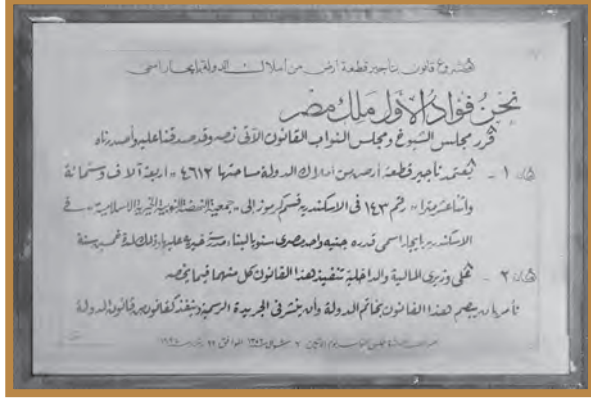 مشروع قانون بتأجير قطعة أرض من أملاك الدولة بإيجار اسمى
نحن فؤاد الأول ملك مصر
قرر مجلس الشيوخ ومجلس النواب القانون الآتى نصه وقد صدقنا عليه وأصدرناه
مادة ١ - يُعتمد تأجير قطعة أرض من أملاك الدولة مساحتها ٤٦١٢ « أربعة آلاف وستمائة
واثنا عشر مترا » رقم ١٤٣ فى الاسكندرية قسم كرموز إلى « جمعية النهضة النوبية الخيرية الاسلامية » فى
الاسكندرية بايجار اسمى قدره جنيه واحد مصرى سنويا لبناء عليها وذلك لمدة خمسين سنة
مادة ٢ - على وزيرى المالية والداخلية تنفيذ هذا القانون كل منهما فيما يخصه
نأمر بأن يبصم هذا القانون بخاتم الدولة وأن ينشر فى الجريدة الرسمية وينفذ كقانون من قوانين الدولة